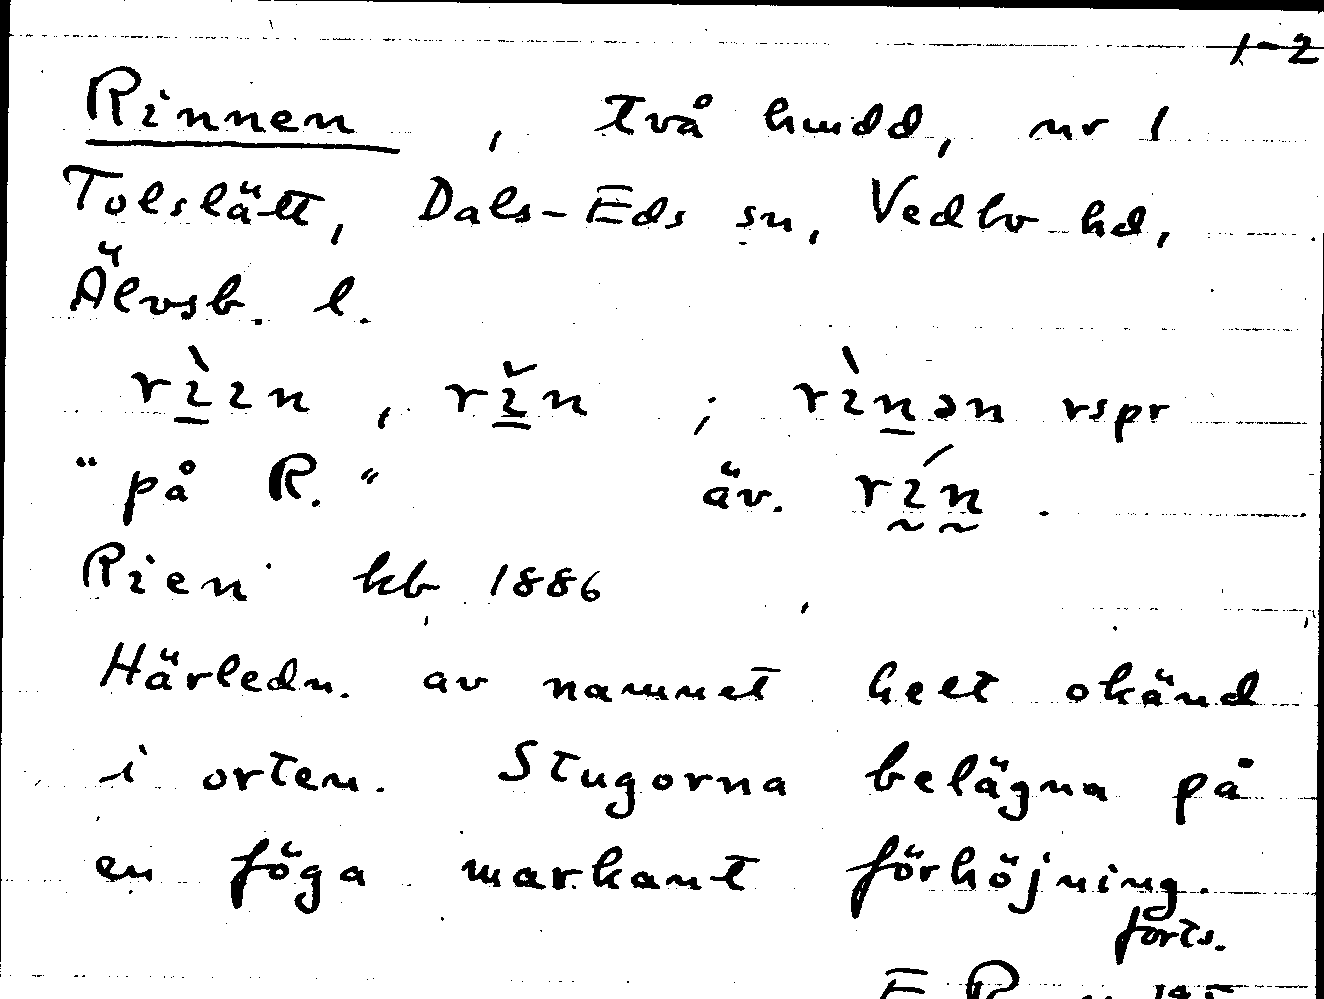 1-2
Rinnen, två hmdd, nr 1
Tolslätt, Dals-Eds sn, Vedbo hd,
Älvsb. l.
rspr
"på R." äv.
Rien kb 1886
Härledn. av namnet helt okänd
i orten. Stugorna belägna på
en föga markant förhöjning.
forts.